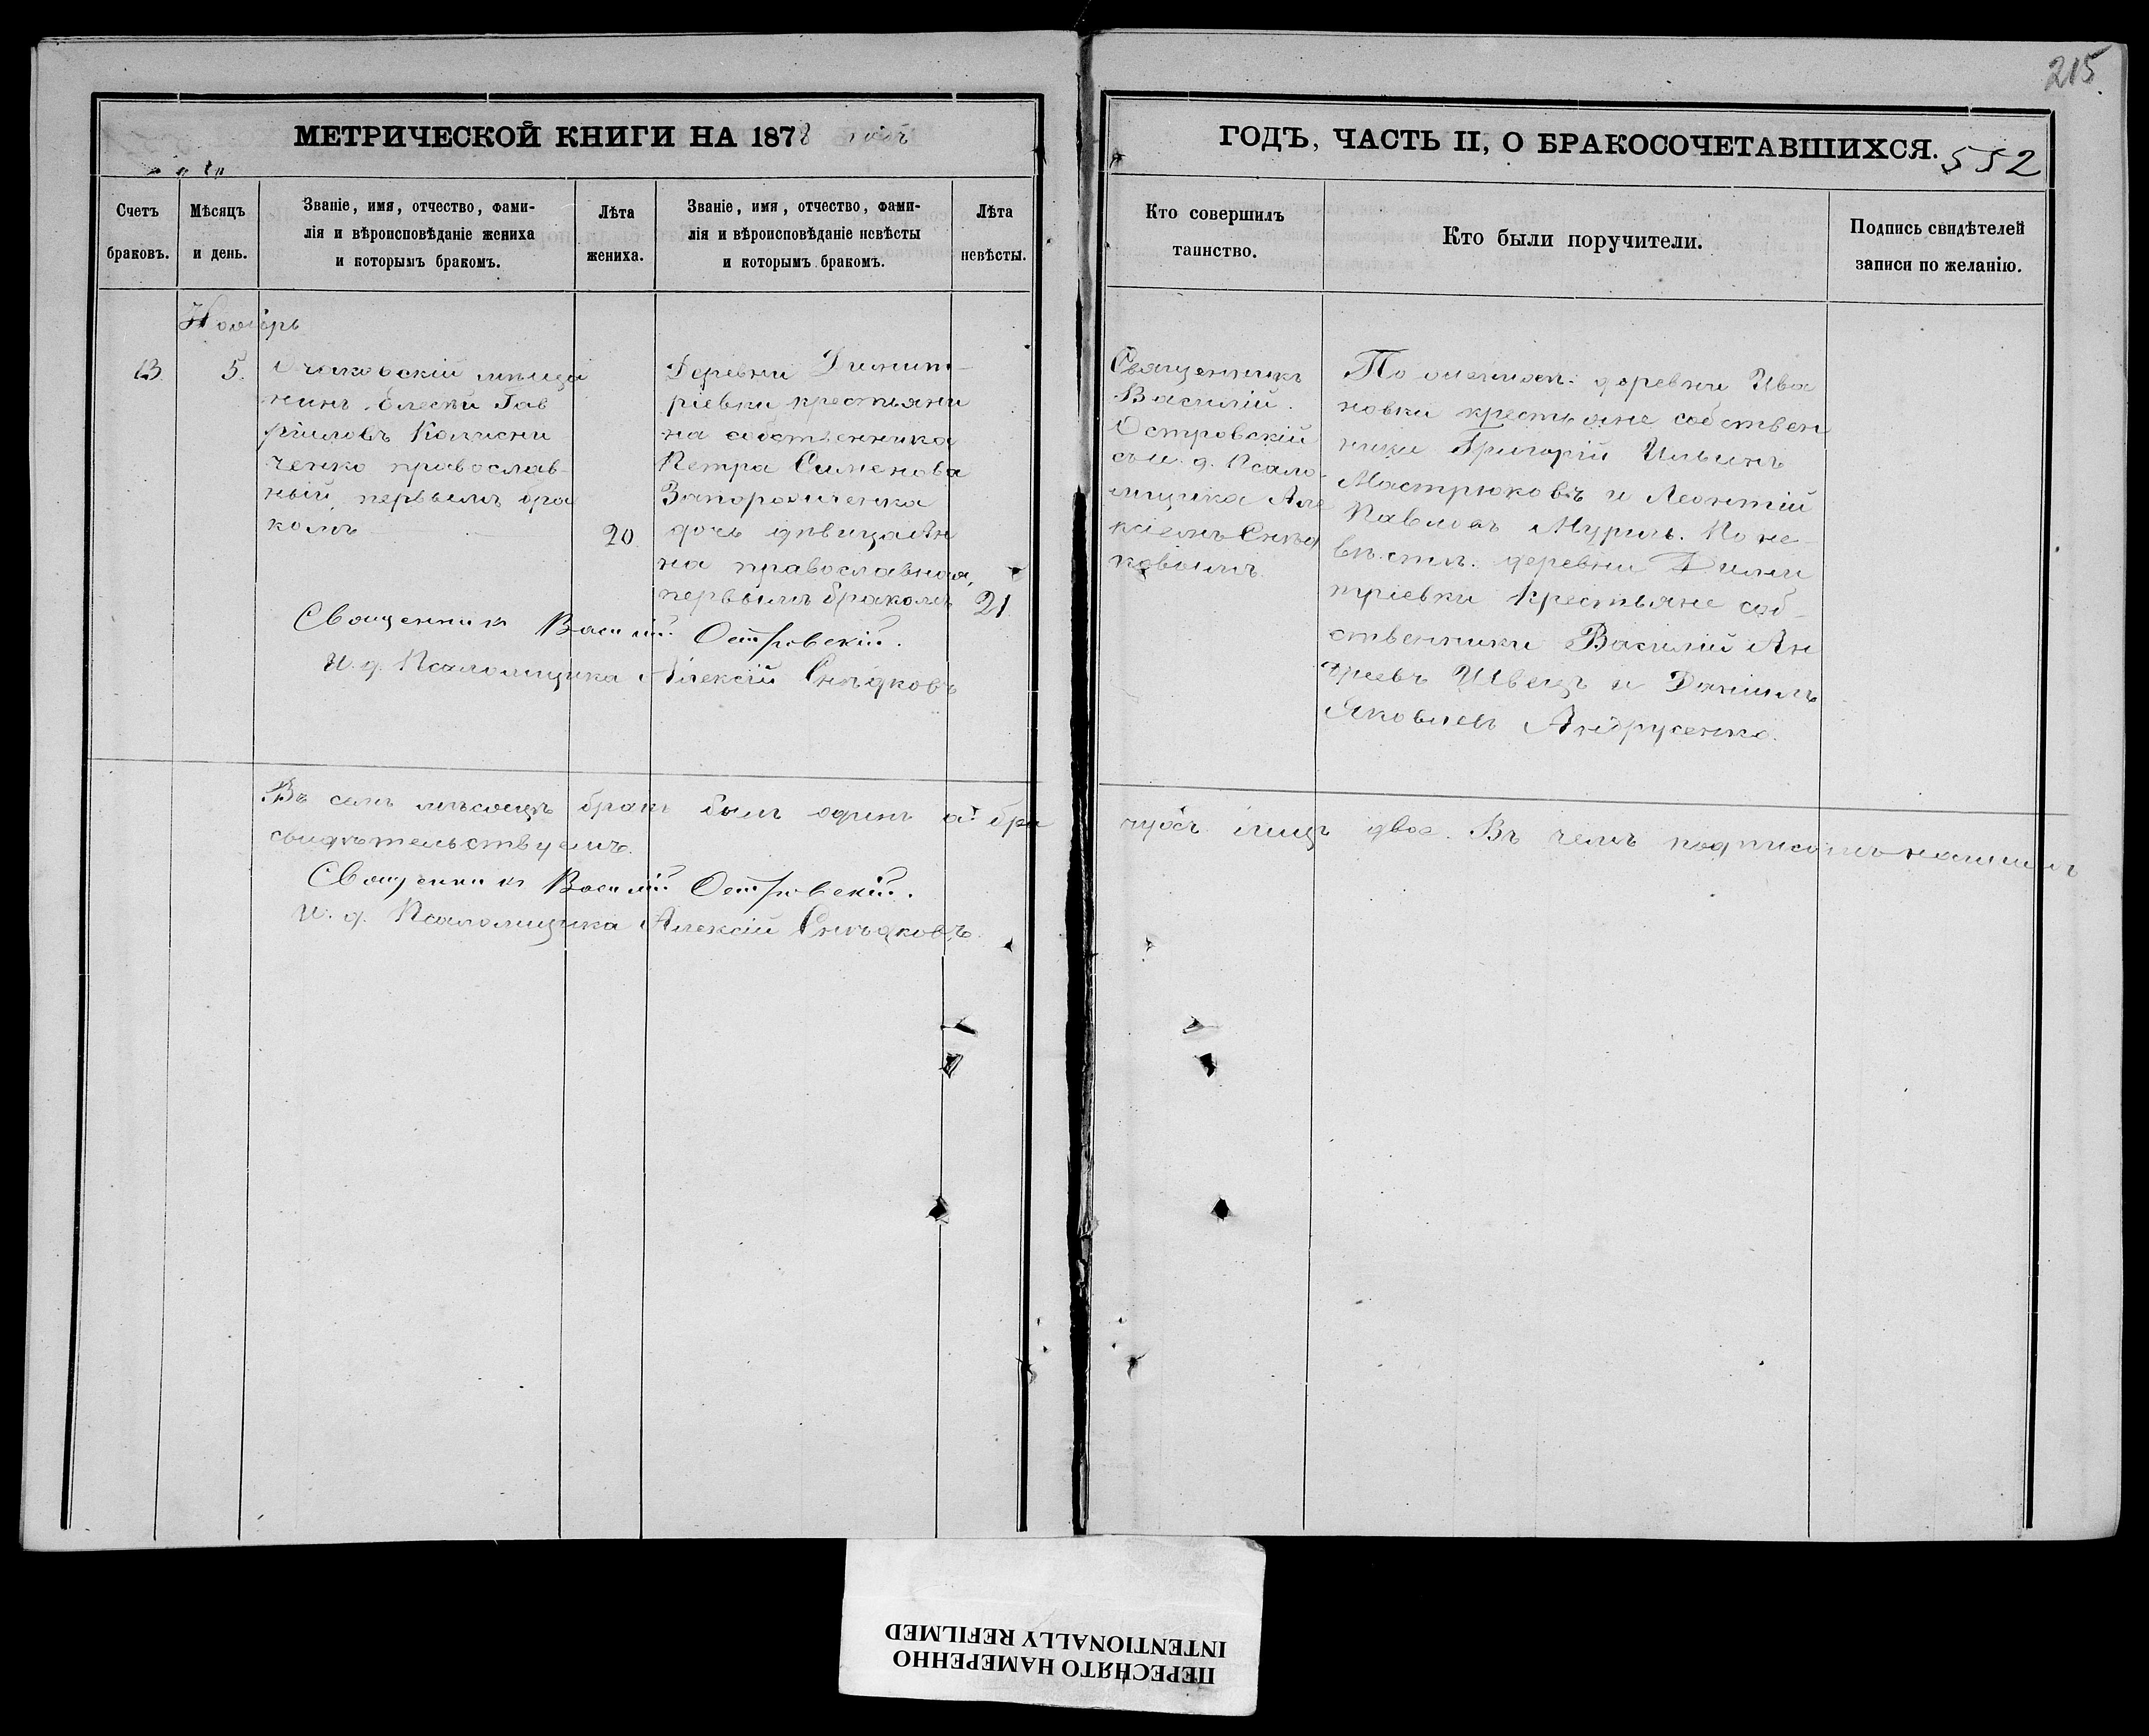 215.
МЕТРИЧЕСКОЙ КНИГИ НА 1878
ГОДЪ, ЧАСТЬ II, О БРАКОСОЧЕТАВШИХСЯ.
552
Счетъ
браковъ.
Мѣсяцъ
и день.
Званіе, имя, отчество, фами-
лія и вѣроисповѣданіе жениха
и которымъ бракомъ.
Лѣта
жениха.
Званіе, имя, отчество, фами-
лія и вѣроисповѣданіе невѣсты
и которымъ бракомъ.
Лѣта
невѣсты.
Кто совершилъ
таинство.
Кто были поручители.
Подпись свидѣтелей
записи по желанію.
Ноябрь
13.
5.
Очаковскій мѣща
нинъ Гав
рииловъ Колисни
ченко православ-
ный, первымъ бра
комъ
20
Деревни Димит-
ріевки крестьяни
на собственника
Петра Сименова
дочь дѣвица Ан
на православная,
первымъ бракомъ
21
Священникъ Василій Островскій.
И. д. Псаломщика Алексій Снѣдковъ
Священникъ
Василій
Островскій
съ и. д. Псало-
мщика Але
ксіемъ Снѣд
ковымъ.
По деревни Ива
новки крестьяне собствен
ники Григорій Ильинъ
Мастрюковъ и Леонтій
Павловъ По не-
вѣстѣ: деревни Дими
тріевки крестьяне соб-
ственники Василій Ан
дреевъ Швецъ и Даніилъ
Яковлевъ Андрусенко.
Въ семъ мѣсяцѣ бракъ былъ одинъ а бра
чущ. лицъ двое. Въ чемъ подписомъ нашимъ
свидѣтельствуемъ.
Священникъ Василій Островскій.
И. д. Псаломщика Алексій Снѣдковъ.
ПЕРЕСНЯТО НАМЕРЕННО
INTENTIONALLY REFILMED